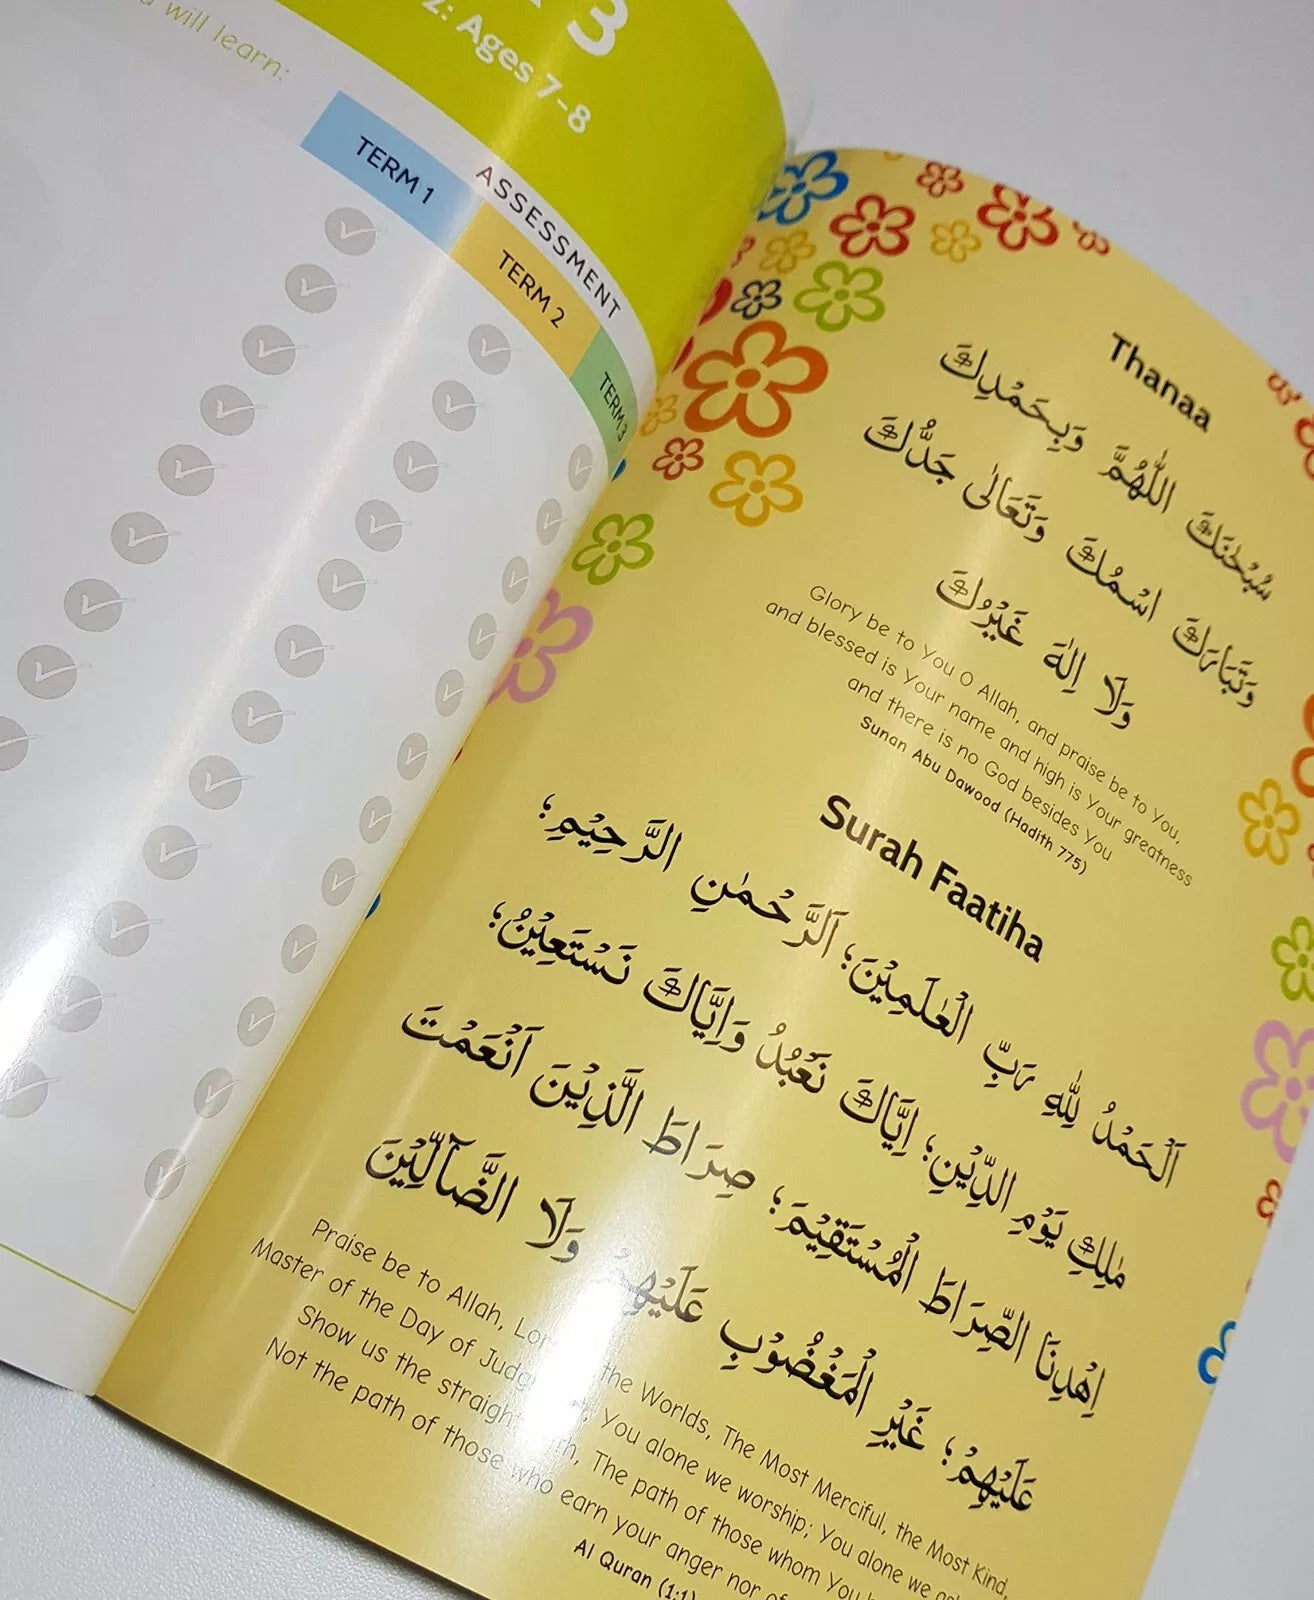 3
2: Ages 7-8
will learn:
ASSESSMENT
TERM 1
TERM 2
TERM 3
Thanaa
سُبْحٰنَكَ اللّٰهُمَّ وَبِحَمْدِكَ
وَتَبَارَكَ اسْمُكَ وَتَعَالٰى جَدُّكَ
وَلَا اِلٰهَ غَيْرُكَ
Glory be to You O Allah, and praise be to You,
and blessed is Your name and high is Your greatness
and there is no God besides You
Sunan Abu Dawood (Hadith 775)
Surah Faatiha
اَلْحَمْدُ لِلّٰهِ رَبِّ الْعٰلَمِيْنَ؛ اَلرَّحْمٰنِ الرَّحِيْمِ؛
مٰلِكِ يَوْمِ الدِّيْنِ؛ اِيَّاكَ نَعْبُدُ وَاِيَّاكَ نَسْتَعِيْنُ؛
اِهْدِنَا الصِّرَاطَ الْمُسْتَقِيْمَ؛ صِرَاطَ الَّذِيْنَ اَنْعَمْتَ
عَلَيْهِمْ؛ غَيْرِ الْمَغْضُوْبِ عَلَيْهِمْ وَلَا الضَّآلِّيْنَ
Praise be to Allah, the Worlds, The Most Merciful, the Most Kind,
Master of the Day of You alone we worship; You alone we
Show us the straight The path of those whom You
Not the path of those who earn your anger nor of
Al Quran (1:1)